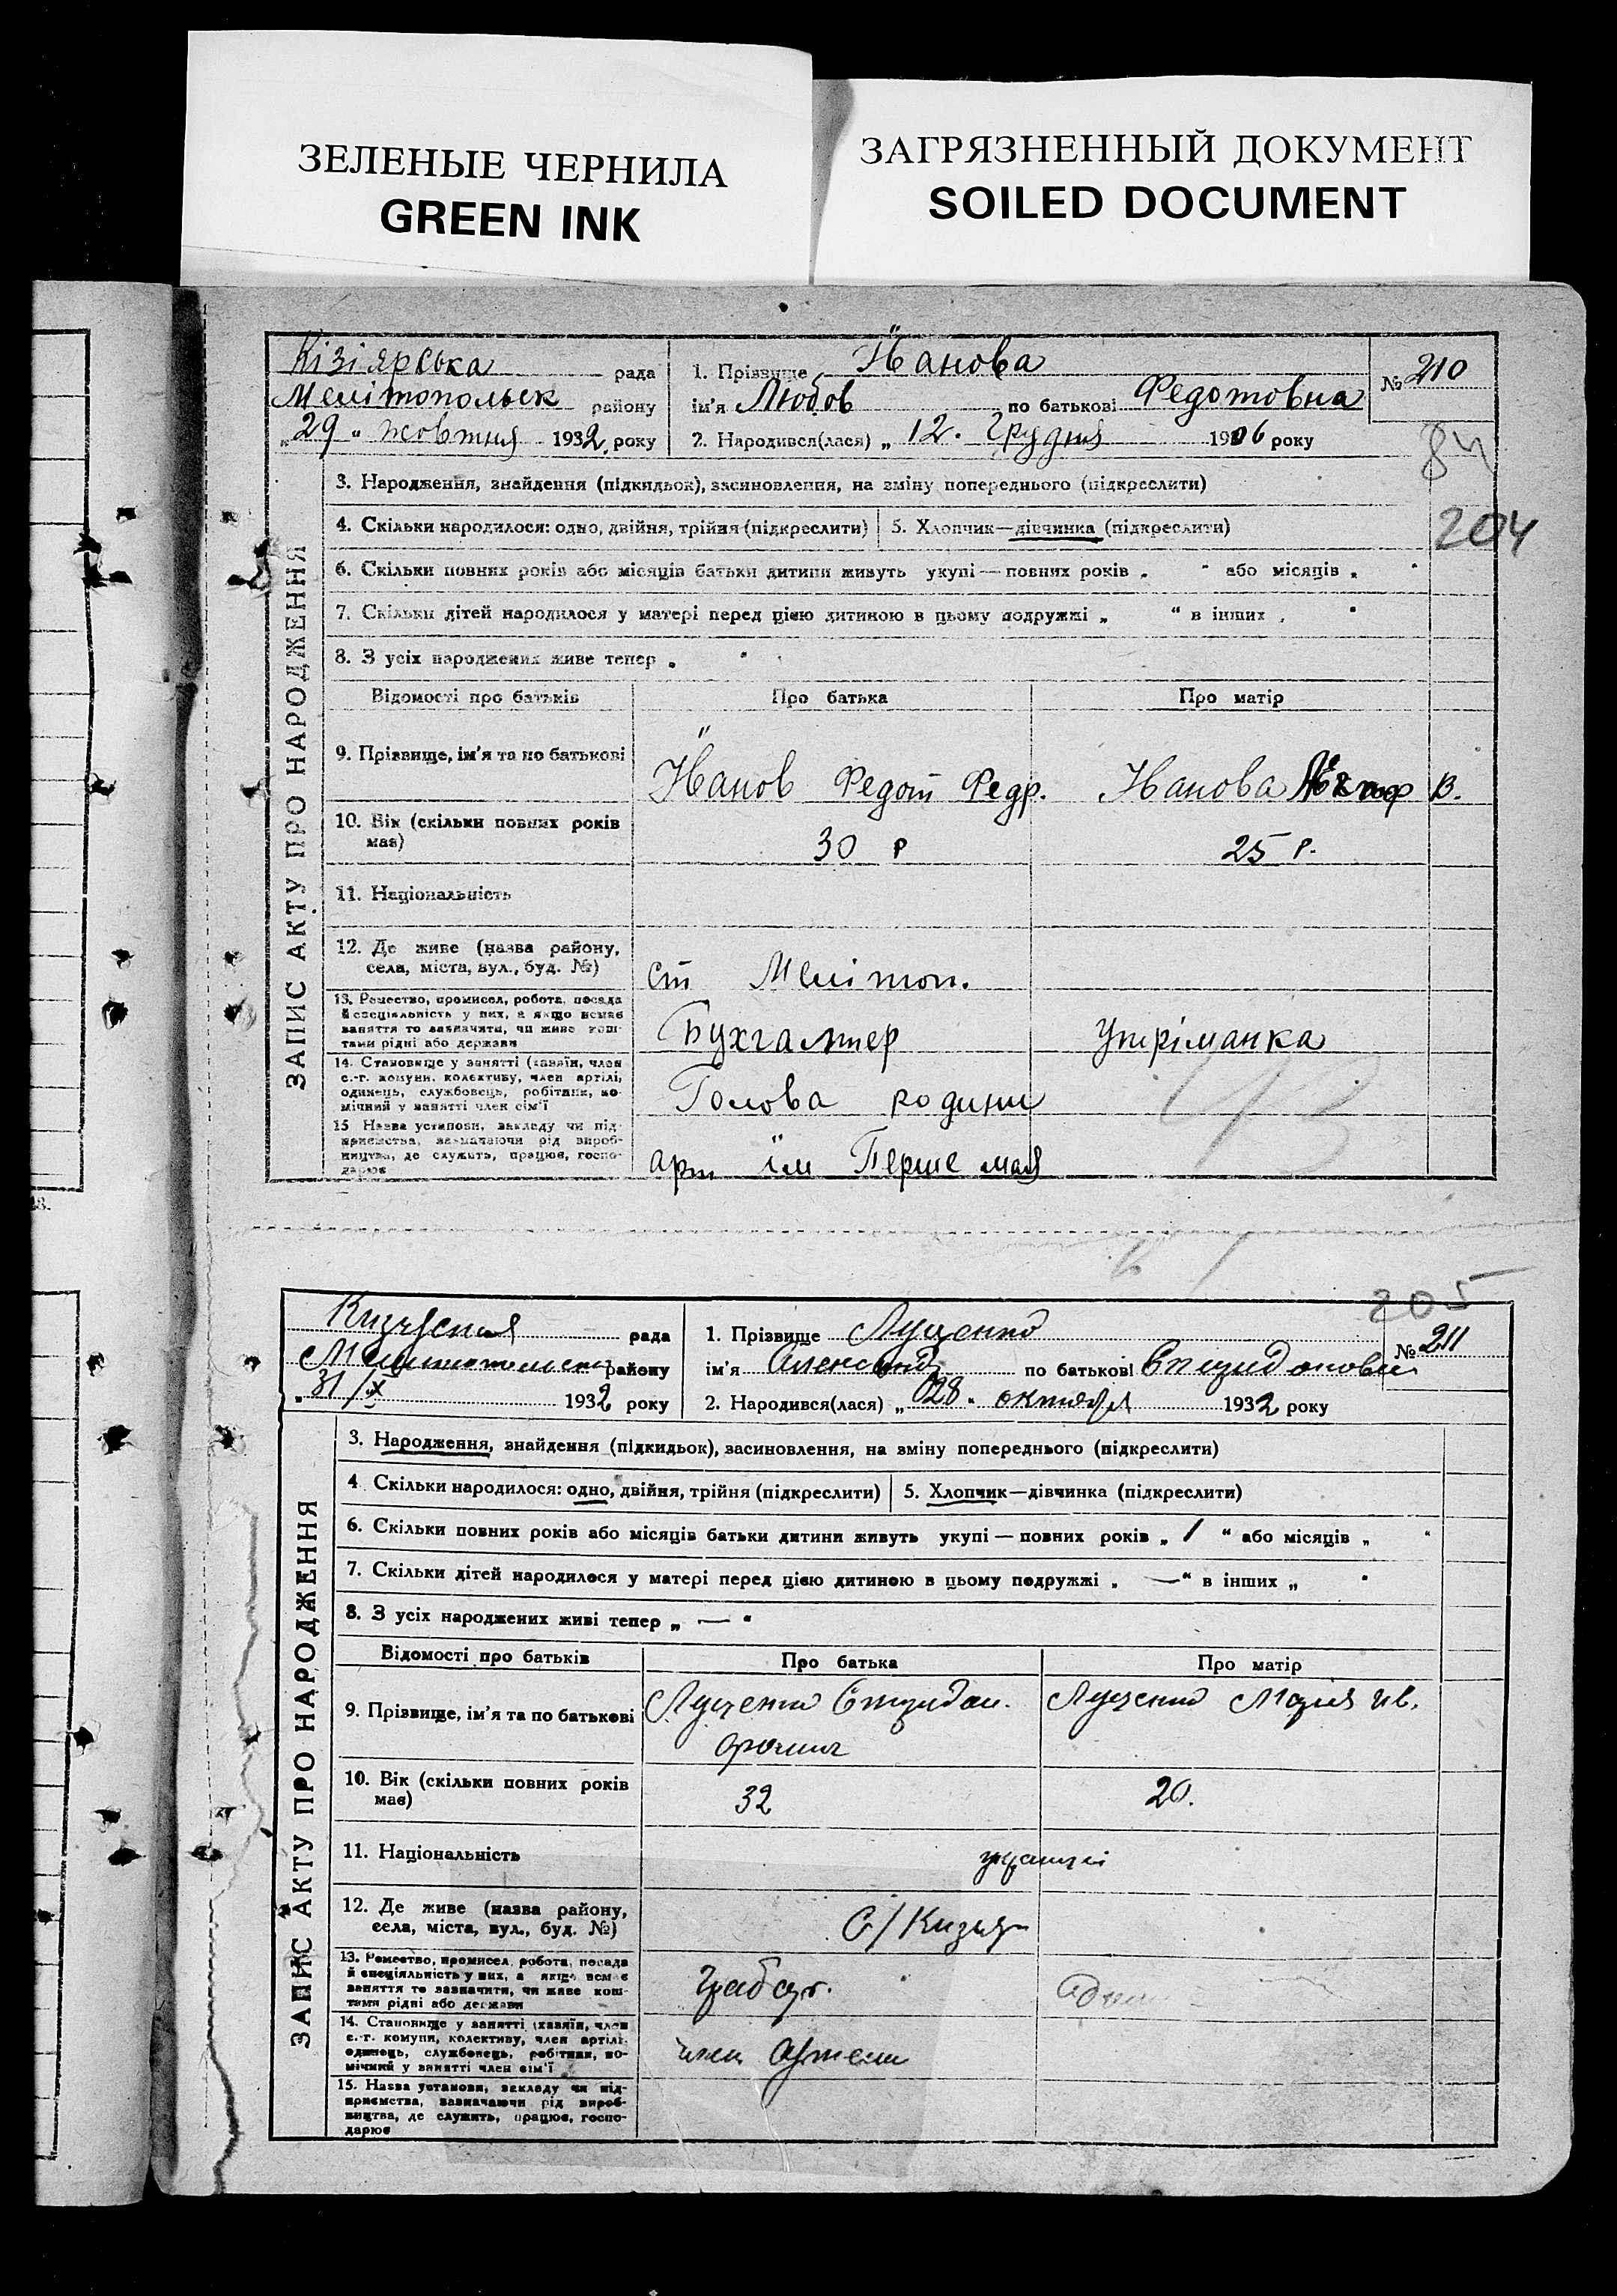 ЗЕЛЕНЫЕ ЧЕРНИЛА
GREEN INK
ЗАГРЯЗНЕННЫЙ ДОКУМЕНТ
SOILED DOCUMENT
Кізіярська рада
Мелітопольск району
„29“ жовтня 1932 року
1. Прізвище Іванова
ім'я Любов по батькові Федотовна
2. Народився(лася) „12. Грудня 1906 року
№ 210
84
204
ЗАПИС АКТУ ПРО НАРОДЖЕННЯ
3. Народження, знайдення (підкидьок), засиновлення, на зміну попереднього (підкреслити)
4. Скільки народилося: одно, двійня, трійня (підкреслити) 5. Хлопчик—дівчинка (підкреслити)
6. Скільки повних років або місяців батьки дитини живуть укупі — повних років „ “ або місяців „ “
7. Скільки дітей народилося у матері перед цією дитиною в цьому подружжі „ “ в інших „ “
8. З усіх народжених живе тепер „ “
Відомості про батьків Про батька Про матір
9. Прізвище, ім'я та по батькові Іванов Федот Федр. Іванова В.
10. Вік (скільки повних років має) 30 р 25 р.
11. Національність
12. Де живе (назва району, села, міста, вул., буд. №) ст Мелітоп.
13. Ремество, промисел, робота, посада
й спеціяльність у них, а якщо немає
заняття то зазначити, чи живе кош-
тами рідні або держави
Бухгалтер Утріманка
14. Становище у занятті (хазяїн, член
с.-г. комуни, колективу, член артілі,
одинець, службовець, робітник, по-
мічний у занятті член сім'ї
Голова родини
15 Назва установи, закладу чи під-
приємства, зазначаючи рід вироб-
ництва, де служить, працює, госпо-
дарює
арт ім Перше мая
205
рада
району
„31/X 1932 року
1. Прізвище Луценко
ім'я Александр по батькові
2. Народився(лася) „28“ октября 1932 року
№ 211
ЗАПИС АКТУ ПРО НАРОДЖЕННЯ
3. Народження, знайдення (підкидьок), засиновлення, на зміну попереднього (підкреслити)
4. Скільки народилося: одно, двійня, трійня (підкреслити) 5. Хлопчик—дівчинка (підкреслити)
6. Скільки повних років або місяців батьки дитини живуть укупі — повних років „ 1 “ або місяців „ “
7. Скільки дітей народилося у матері перед цією дитиною в цьому подружжі „ —“ в інших „ “
8. З усіх народжених живі тепер „ — “
Відомості про батьків Про батька Про матір
9. Прізвище, ім'я та по батькові Луценко Луценко Мария Ив.
10. Вік (скільки повних років має) 32 20.
11. Національність
12. Де живе (назва району, села, міста, вул., буд. №) С/Кизияр
13. Ремество, промисел, робота, посада
й спеціяльність у них, а якщо немає
заняття то зазначити, чи живе кош-
тами рідні або держави
Грабар.
14. Становище у занятті (хазяїн, член
с.-г. комуни, колективу, член артілі,
одинець, службовець, робітник, по-
мічний у занятті член сім'ї
член Артели
15. Назва установи, закладу чи під-
приємства, зазначаючи рід вироб-
ництва, де служить, працює, госпо-
дарює